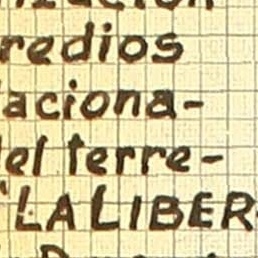 redios
aciona-
el terre-
"LA LIBER-